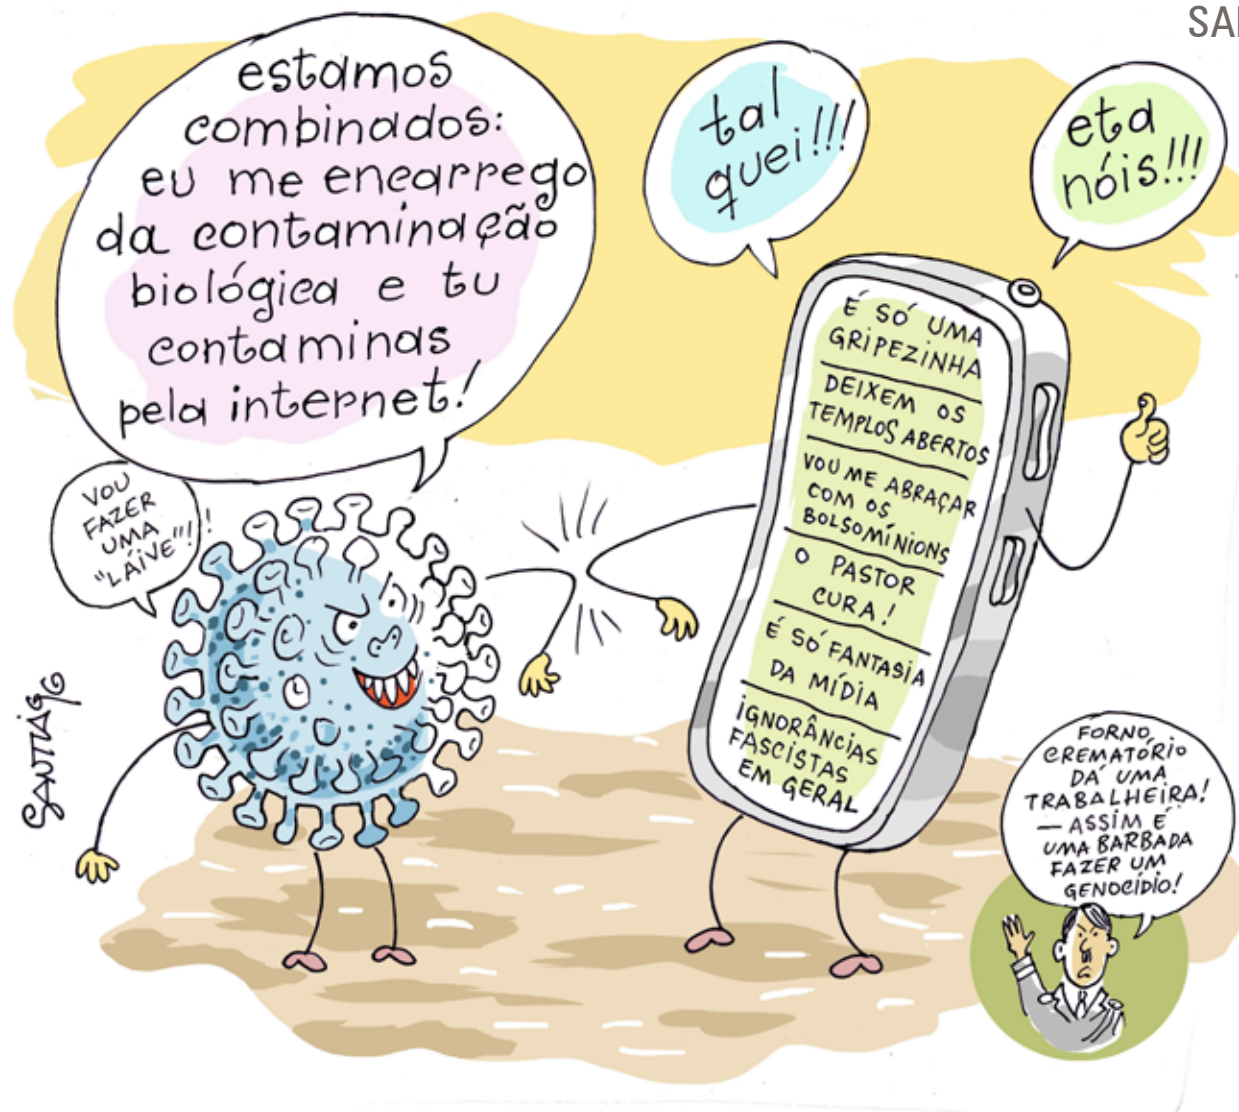 SAI
estamos
combinados:
eu me encarrego
da contaminação
biológica e tu
contaminas
pela internet!
tal
quei!!!
eta
nóis!!!
VOU
FAZER
UMA
"LÁIVE"!!
É SÓ UMA
GRIPEZINHA
DEIXEM OS
TEMPLOS ABERTOS
VOU ME ABRAÇAR
COM OS
BOLSOMÍNIONS
O PASTOR
CURA!
É SÓ FANTASIA
DA MÍDIA
IGNORÂNCIAS
FASCISTAS
EM GERAL
SANTIAGO
FORNO
CREMATÓRIO
DÁ UMA
TRABALHEIRA!
— ASSIM É
UMA BARBADA
FAZER UM
GENOCÍDIO!